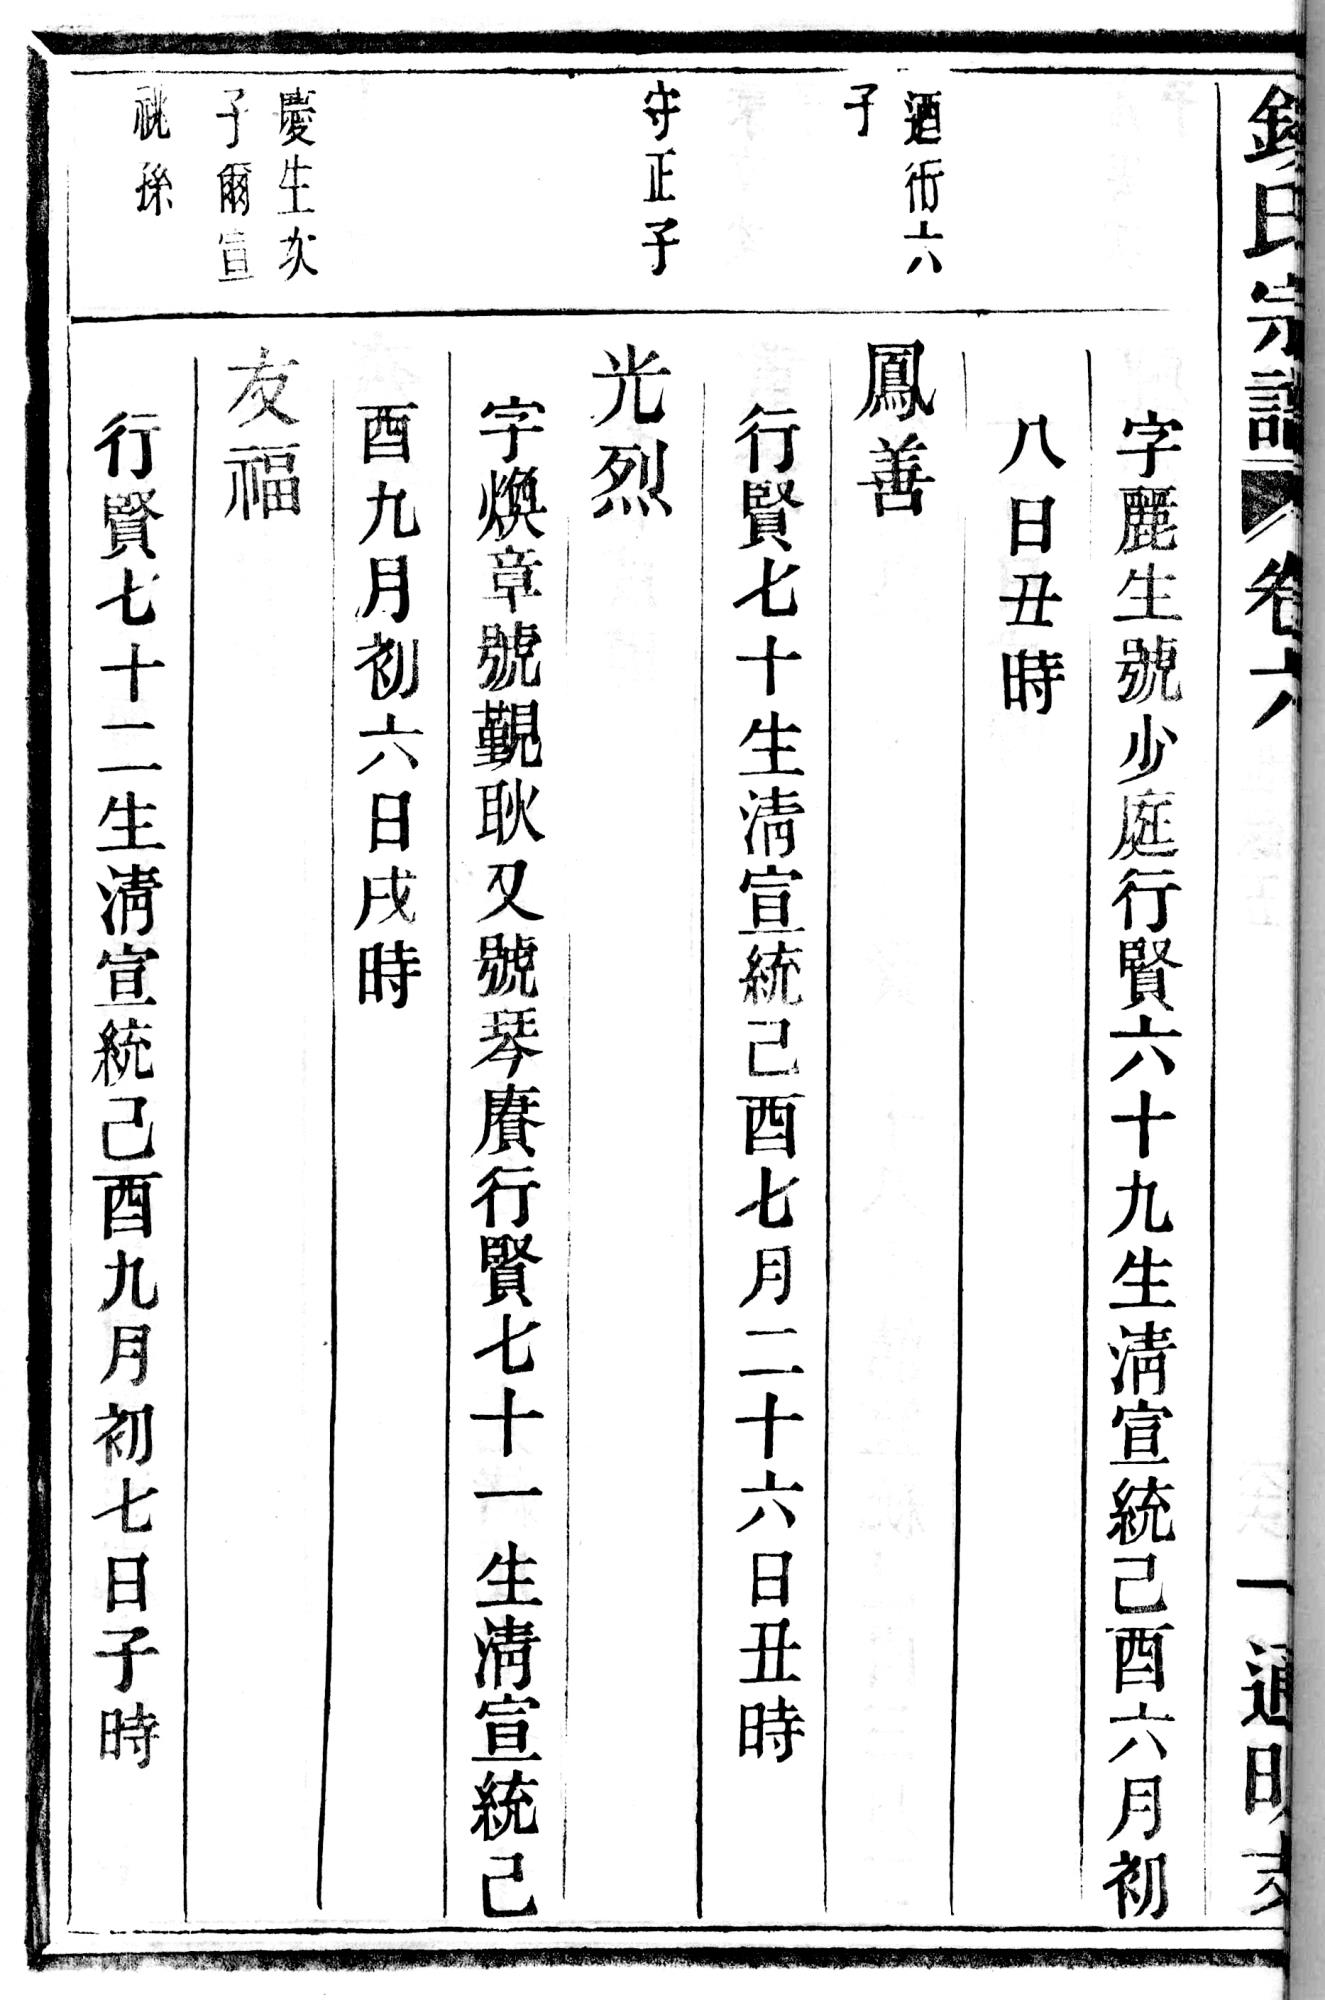 氏宗譜 卷六 一 通明支
字麗生號少庭行賢六十九生淸宣統己酉六月初
八日丑時
迺衖六
子
鳳善
行賢七十生淸宣統己酉七月二十六日丑時
守正子
光烈
字煥章號覲耿又號琴賡行賢七十一生淸宣統己
酉九月初六日戌時
慶生次
子爾宣
祧孫
友福
行賢七十二生淸宣統己酉九月初七日子時